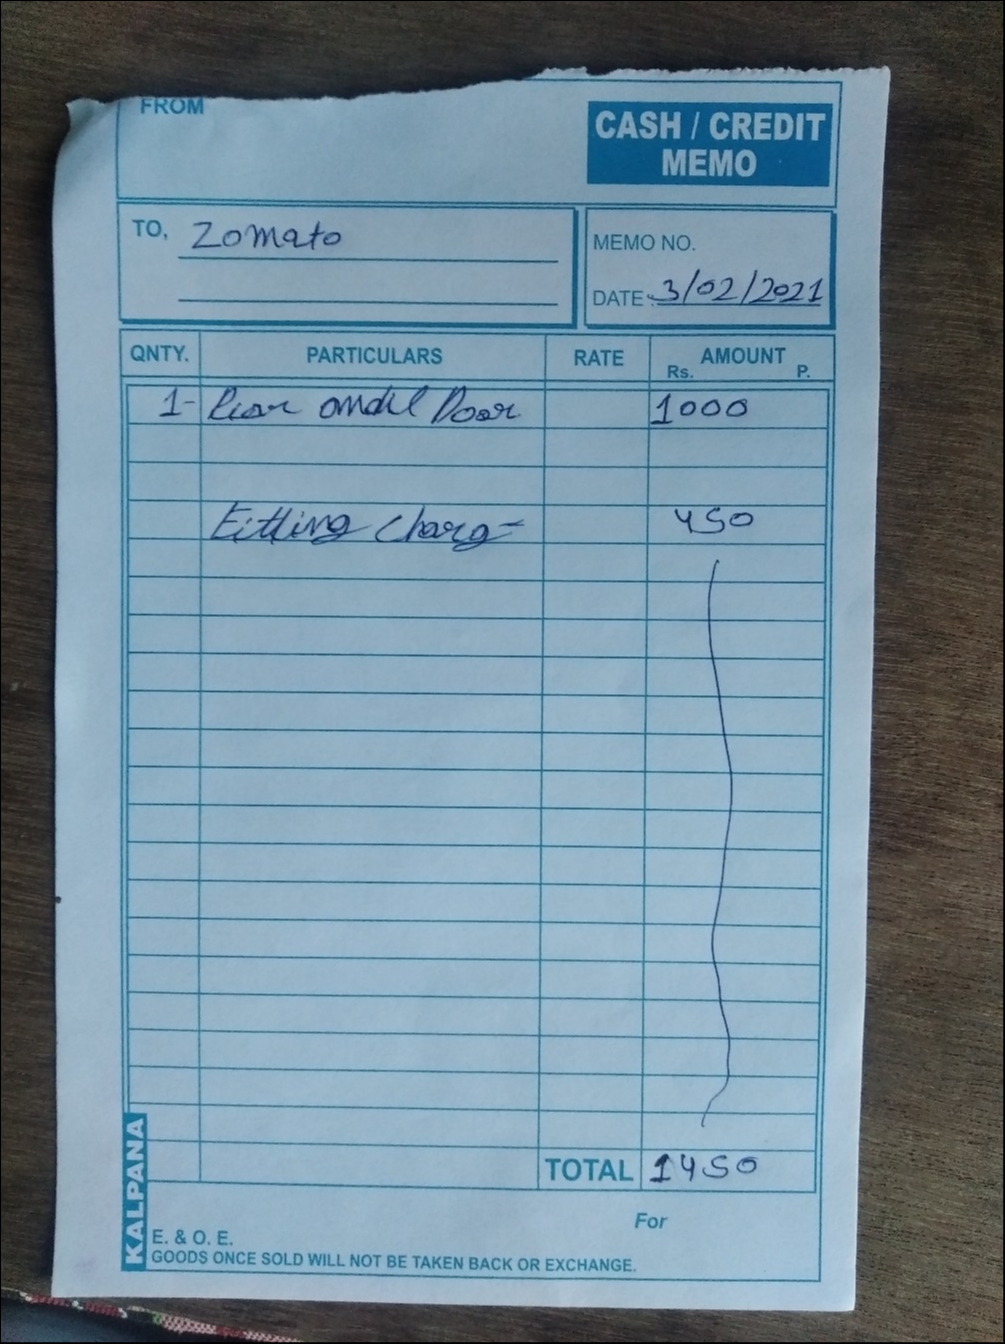 FROM
CASH / CREDIT
MEMO
TO, Zomato
MEMO NO.
DATE: 3/02/2021
QNTY. PARTICULARS RATE AMOUNT
Rs. P.
1- Door 1000
Fitting Charg- 450
TOTAL 1450
For
KALPANA
E. & O. E.
GOODS ONCE SOLD WILL NOT BE TAKEN BACK OR EXCHANGE.